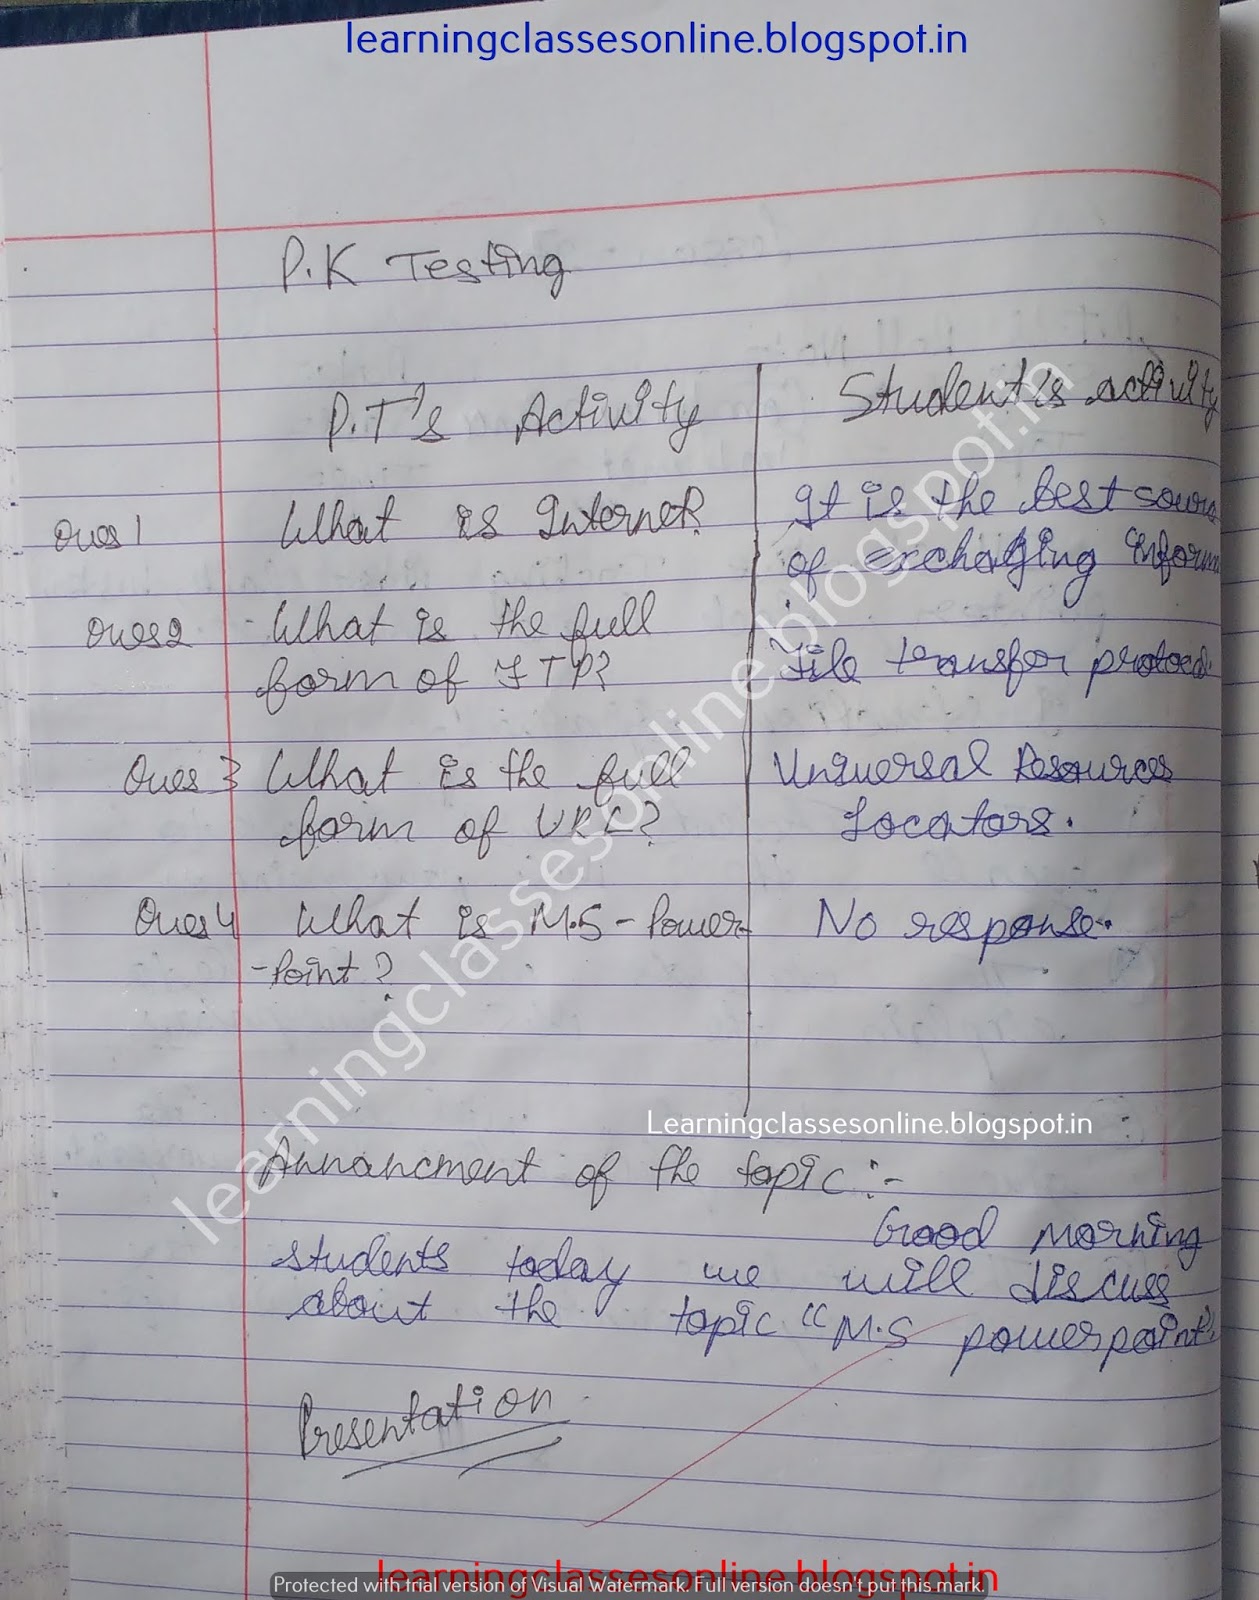 learningclassesonline.blogspot.in
P.K Testing
P.T's Activity
Student's activity
Ques 1 What is Internet?
It is the best sourc
of exchanging inform
Ques 2 What is the full
form of FTP?
File transfer protocol.
Ques 3 What is the full
form of URL?
Universal Resources
Locators.
Ques 4 What is M.S-Power-
-Point?
No response.
learningclassesonline.blogspot.in
Learningclassesonline.blogspot.in
Annancment of the topic:-
Good morning
students today we will discuss
about the topic "M.S powerpoint"
Presentation
learningclassesonline.blogspot.in
Protected with trial version of Visual Watermark. Full version doesn't put this mark.